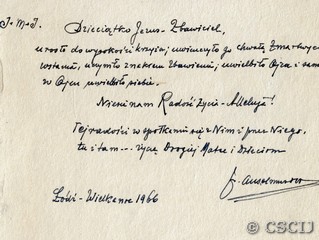 J. M. J.
Dzieciątko Jezus - Zbawiciel,
urosło do wysokości krzyża, uwieńczyło go chwałą Zmartwych
wstania, uczyniło znakiem Zbawienia; uwielbiło Ojca i samo
w Ojcu uwielbiło siebie.
Niesie nam Radość Życia - Alleluja!
Tej radości w spotkaniu się z Nim i przez Niego,
tu i tam --- życzę Drogiej Matce i Dzieciom
Łódź - Wielkanoc 1966
© CSCIJ